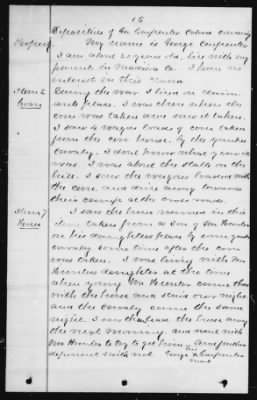 15
Deposition of Geo Carpenter Colored
Respect.
My name is George Carpenter
I am above 21 years old, live with my
parents in Madison Co. I have no
interest in this claim.
Item 2
Corn
During the war I lived on claim-
ants place. I was there when the
corn was taken and saw it taken.
I saw 4 wagon loads of corn taken
from the corn house by the yankee
cavalry. I don't know what year it
was. I was about the stable on the
hill. I saw the wagons loaded with
the corn and drive away towards
their camp at the cross roads.
Item 7
Horse
I saw the horse mentioned in this
item taken from a son of Mr Hunter
on his daughters place by some yankee
cavalry some time after the corn
was taken. I was living with Mr
Hunters daughter at the time
when young Mr Hunter came there
with the horse and staid over night
and the cavalry came the same
night. I saw them take the horse away
the next morning. and went with
Mr Hunter to try to get him. And further
deponent saith not. George his x mark Carpenter